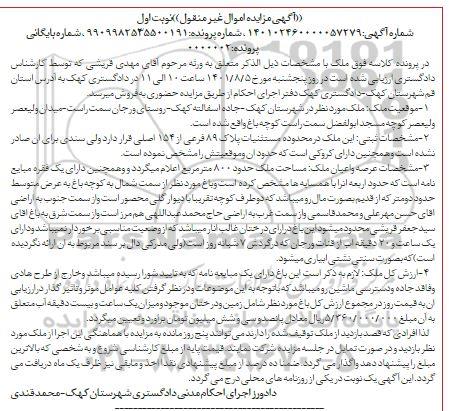 ((آگهی مزایده اموال غیر منقول))نوبت اول
شماره آگهی:۱۴۰۱۰۲۴۶۰۰۰۰۰۵۷۲۷۹ ،شماره پرونده:۹۹۰۹۹۸۲۵۳۵۵۰۰۱۹۱ ،شماره بایگانی
پرونده:۰۰۰۰۰۰۲
در پرونده کلاسه فوق ملک با مشخصات ذیل الذکر متعلق به ورثه مرحوم آقای مهدی قریشی که توسط کارشناس
دادگستری ارزیابی شده است در روز پنجشنبه مورخ ۱۴۰۱/۸/۵ ساعت ۱۰ الی ۱۱ در دادگستری کهک به آدرس استان
قم شهرستان کهک-دادگستری کهک دفتر اجرای احکام از طریق مزایده حضوری به فروش میرسد.
۱-موقعیت ملک: ملک مورد نظر در شهرستان کهک -جاده اسفالته کهک-روستای ورجان سمت راست-میدان ولیعصر
ولیعصر کوچه مسجد ابولفضل سمت راست کوچه باغ واقع شده است.
۲-مشخصات ثبتی: این ملک در محدوده مستثنیات پلاک ۸۹ فرعی از ۱۵۴ اصلی قرار دارد ولی سندی برای ان صادر
نشده است وهمچنین دارای کروکی است که حدود ان وموقعیتش را مشخص نموده است.
۳-مشخصات عرصه واعیان ملک: مساحت ملک حدود ۸۰۰ مترمربع اعلام میگردد وهمچنین دارای یک فقره مبایعه
نامه است که حدود اربعه انرا با همسایه ها مشخص کرده است وباغ مورد نظر از سمت شمال به کوچه باغ به عرض متوسط
حدود دومتر که از قدیم بصورت مال رو میباشد که دو طرف کوچه تقریبا با دیوار گلی محصور است واز سمت جنوب به اراضی
اقای حسن مهرعلی ومحمدقاسمی واز سمت غرب به اراضی حاج محمد عبداللهی هم مرز است واز سمت شرق به باغ اقای
سیدجعفر قریشی محدود میشود این باغ دارای درختان غالب انار میباشد که از وضعیت مناسبی برخوردار نمیباشد ودارای
یک ساعت و۲۰ دقیقه اب از قنات ورجان که در گردش ۷ شبانه روز است(ولی مدرکی دال بر سند مربوط به ان ارائه نگردیده
است)که بصورت سنتی نشتی ابیاری میشود.
۴-ارزش کل ملک: لازم به ذکر است این باغ دارای یک مبایعه نامه که به تایید شورا رسیده میباشد وخارج از طرح هادی
وفاقد جاده ودسترسی ماشین رو میباشد که باتوجه به این موضوعات ودر نظر گرفتن کلیه عوامل موثر وتاثیر گذار در ارزیابی
ان به قیمت روز در مجموع ارزش کل باغ مورد نظر شامل زمین ودرختان موجود ومیزان یک ساعت و بیست دقیقه آب متعلق
به ان مبلغ ۵/۳۶۰/۰۰۰/۰۰۰ ریال معادل پانصد وسی وشش میلیون تومان براورد وتعیین میگردد.
لذا افرادی که قصد بازدید از ملک توقیف شده را دارند می توانند پنج روز مانده به مزایده با هماهنگی این اجرا از ملک مورد
نظر بازدید و در صورت تمایل در جلسه مزایده شرکت نمایند. قیمت پایه از مبلغ کارشناسی شروع و به شخصی که بالاترین
مبلغ را پیشنهاد دهد واگذار می گردد. ضمنا ده درصد از مبلغ پیشنهادی نقدا اخذ و مابقی نیز ظرف یک ماه دریافت می
گردد. این آگهی یک نوبت در یکی از روزنامه های محلی درج می گردد.
دادورز اجرای احکام مدنی دادگستری شهرستان کهک-محمد قندی